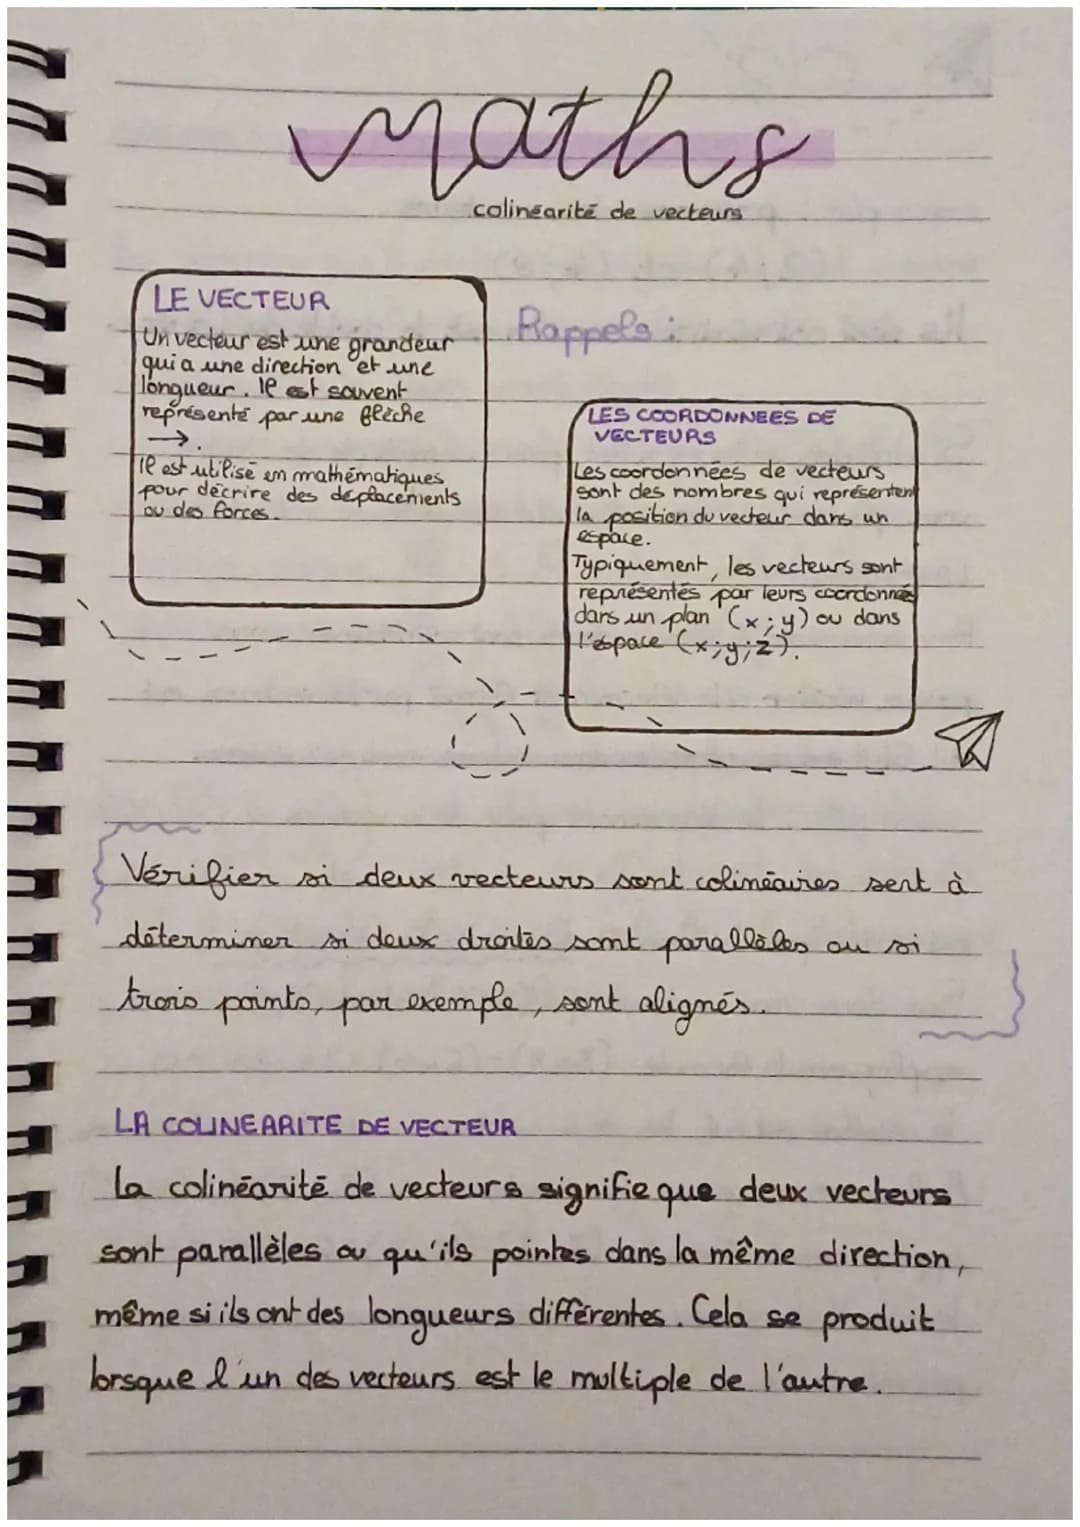 Maths
colinéarité de vecteurs
LE VECTEUR
Un vecteur est une grandeur
qui a une direction et une
longueur. Il est souvent
représenté par une flèche
→.
Il est utilisé en mathématiques
pour décrire des déplacements
ou des forces.
Rappels :
LES COORDONNEES DE
VECTEURS
Les coordonnées de vecteurs
sont des nombres qui représentent
la position du vecteur dans un
espace.
Typiquement, les vecteurs sont
représentés par leurs coordonnées
dans un plan (x;y) ou dans
l'espace (x;y;z).
Vérifier si deux vecteurs sont colinéaires sert à
déterminer si deux droites sont parallèles ou si
trois points, par exemple, sont alignés.
LA COLINEARITE DE VECTEUR
La colinéarité de vecteurs signifie que deux vecteurs
sont parallèles ou qu'ils pointes dans la même direction,
même si ils ont des longueurs différentes. Cela se produit
lorsque l'un des vecteurs est le multiple de l'autre.